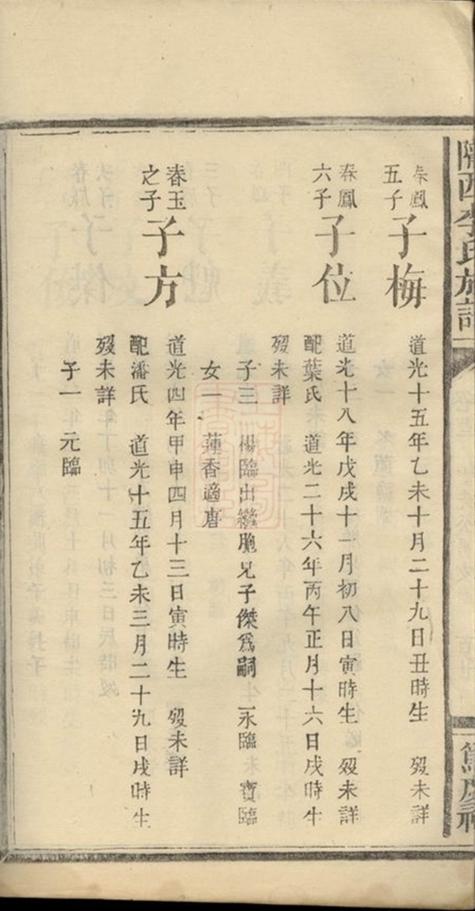 隴西李氏族譜
春鳳五子 子梅 道光十五年乙未十月二十九日丑時生 歿未詳
春鳳六子 子位 道光十八年戊戌十一月初八日寅時生 歿未詳
配葉氏 道光二十六年丙午正月十六日戌時生
歿未詳
子三 楊臨出繼胞兄子傑爲嗣 永臨 寶臨
女一 蓮香適唐
春玉之子 子方 道光四年甲申四月十三日寅時生 歿未詳
配潘氏 道光十五年乙未三月二十九日戌時生
歿未詳
子一 元臨